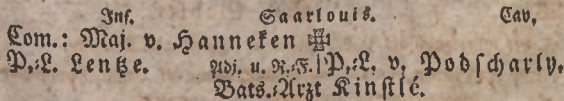 Inf. Saarlouis. Cav,
Com.: Maj. v. Hanneken ✠
P.=L. Lentze. Adj. u. R.=F. | P.=L. v. Podscharly.
Bats.=Arzt Kinstlé.